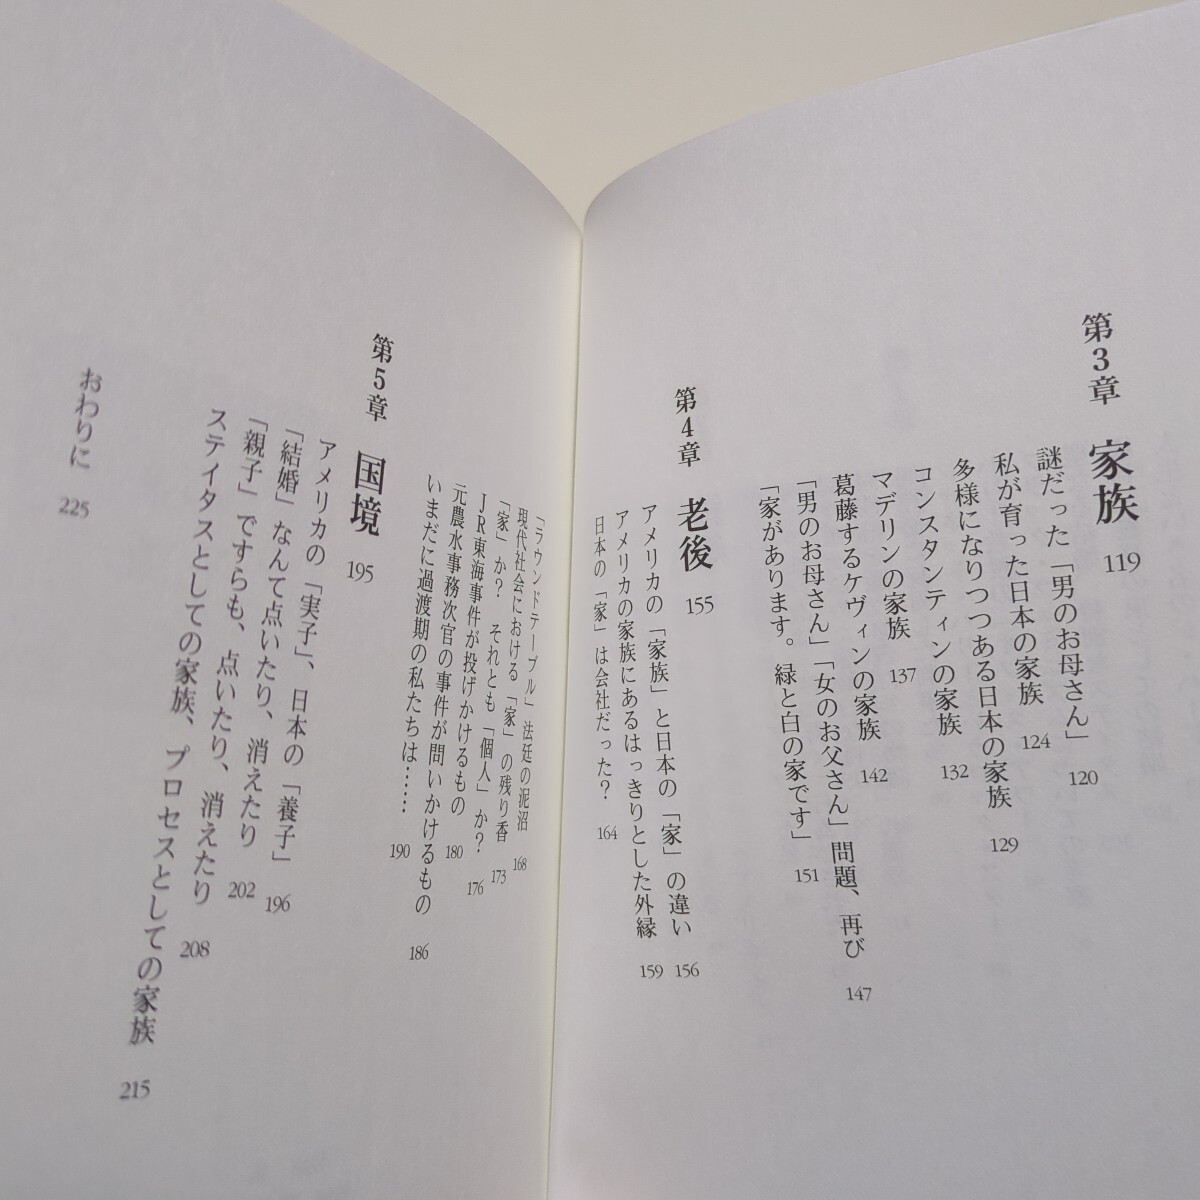 第3章 家族 119
謎だった「男のお母さん」 120
私が育った日本の家族 124
多様になりつつある日本の家族 129
コンスタンティンの家族 132
マデリンの家族 137
葛藤するケヴィンの家族 142
「男のお母さん」「女のお父さん」問題、再び 147
「家があります。緑と白の家です」 151
第4章 老後 155
アメリカの「家族」と日本の「家」の違い 156
アメリカの家族にあるはっきりとした外縁 159
日本の「家」は会社だった? 164
「ラウンドテーブル」法廷の泥沼 168
現代社会における「家」の残り香 173
「家」か? それとも「個人」か? 176
JR東海事件が投げかけるもの 180
元農水事務次官の事件が問いかけるもの 186
いまだに過渡期の私たちは…… 190
第5章 国境 195
アメリカの「実子」、日本の「養子」 196
「結婚」なんて点いたり、消えたり 202
「親子」ですらも、点いたり、消えたり 208
ステイタスとしての家族、プロセスとしての家族 215
おわりに 225